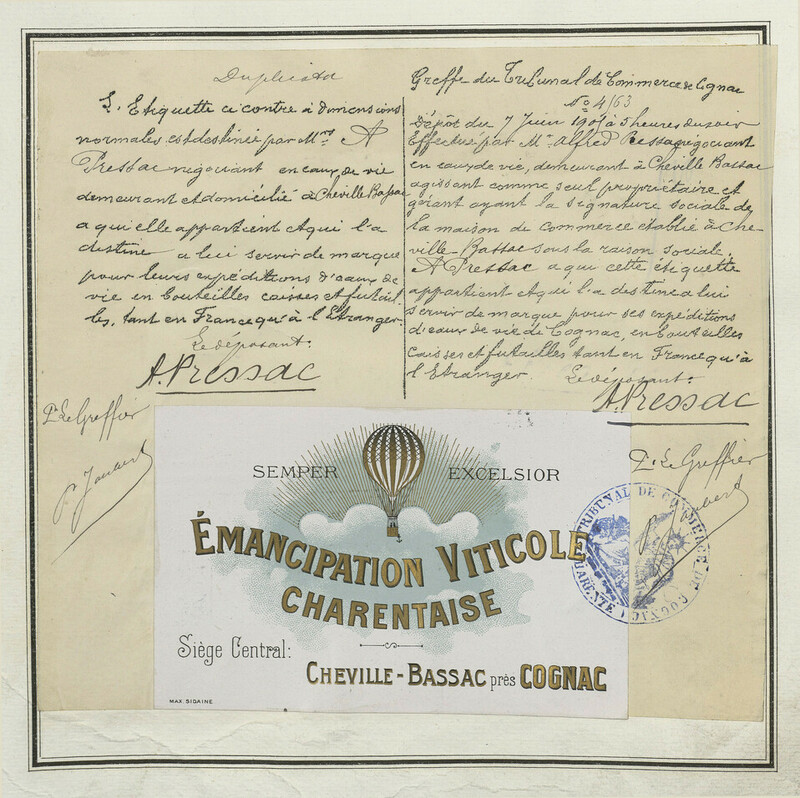 Duplicata
L'Etiquette ci contre à dimensions
normales est destinée par Mrs A
Pressac négociant en eaux de vie
demeurant et domicilié à Cheville Bassac
a qui elle appartient et qui l'a
destine a lui servir de marque
pour leurs expéditions d'eaux de
vie en bouteilles caisses et futail
les, tant en France qu'à l'Etranger.
Le déposant:
A. Pressac
Pr Le Greffier
P. Joubert
Greffe du Tribunal de Commerce de Cognac
No 4163
Dépôt du 7 Juin à 3 heures du soir
Effectué par Mr Alfred Pressac négociant
en eaux de vie, demeurant à Cheville Bassac
agissant comme seul propriétaire et
gérant ayant la signature sociale de
la maison de commerce etablie à Che
ville-Bassac sous la raison sociale,
A Pressac a qui cette étiquette
appartient et qui l'a destine a lui
servir de marque pour ses expéditions
d'eaux de vie de Cognac, en bouteilles
caisses et futailles tant en France qu'à
l'Etranger.
Le déposant:
A. Pressac
Pr Le Greffier
P. Joubert
SEMPER EXCELSIOR
ÉMANCIPATION VITICOLE
CHARENTAISE
Siège Central:
CHEVILLE-BASSAC près COGNAC
MAX. SIDAINE
TRIBUNAL DE COMMERCE DE COGNAC (CHARENTE)